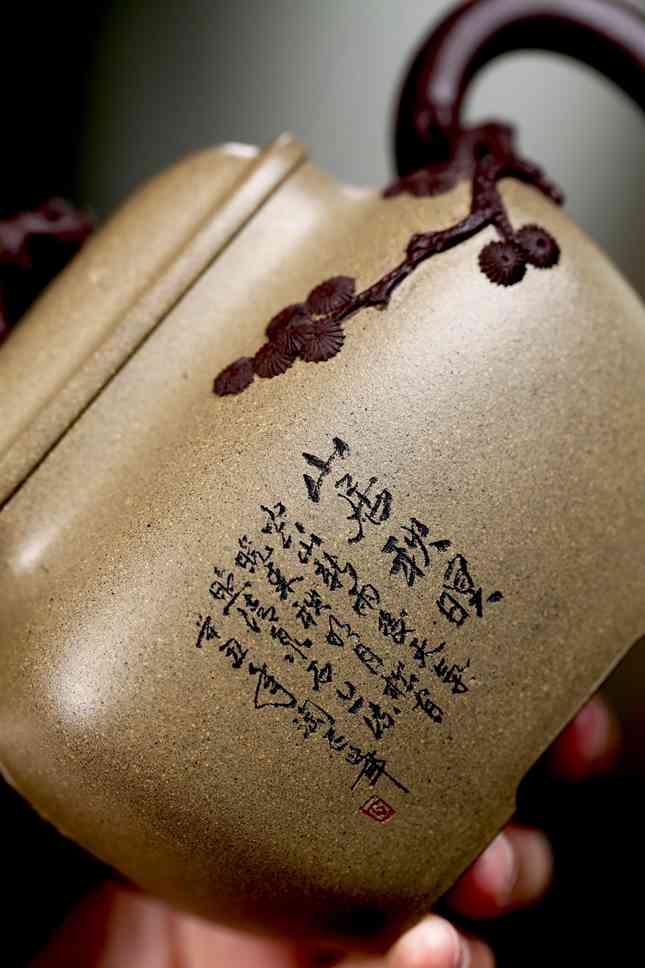 山居秋暝
空山新雨後天氣
晚来秋明月松间
照清泉石上流
辛丑